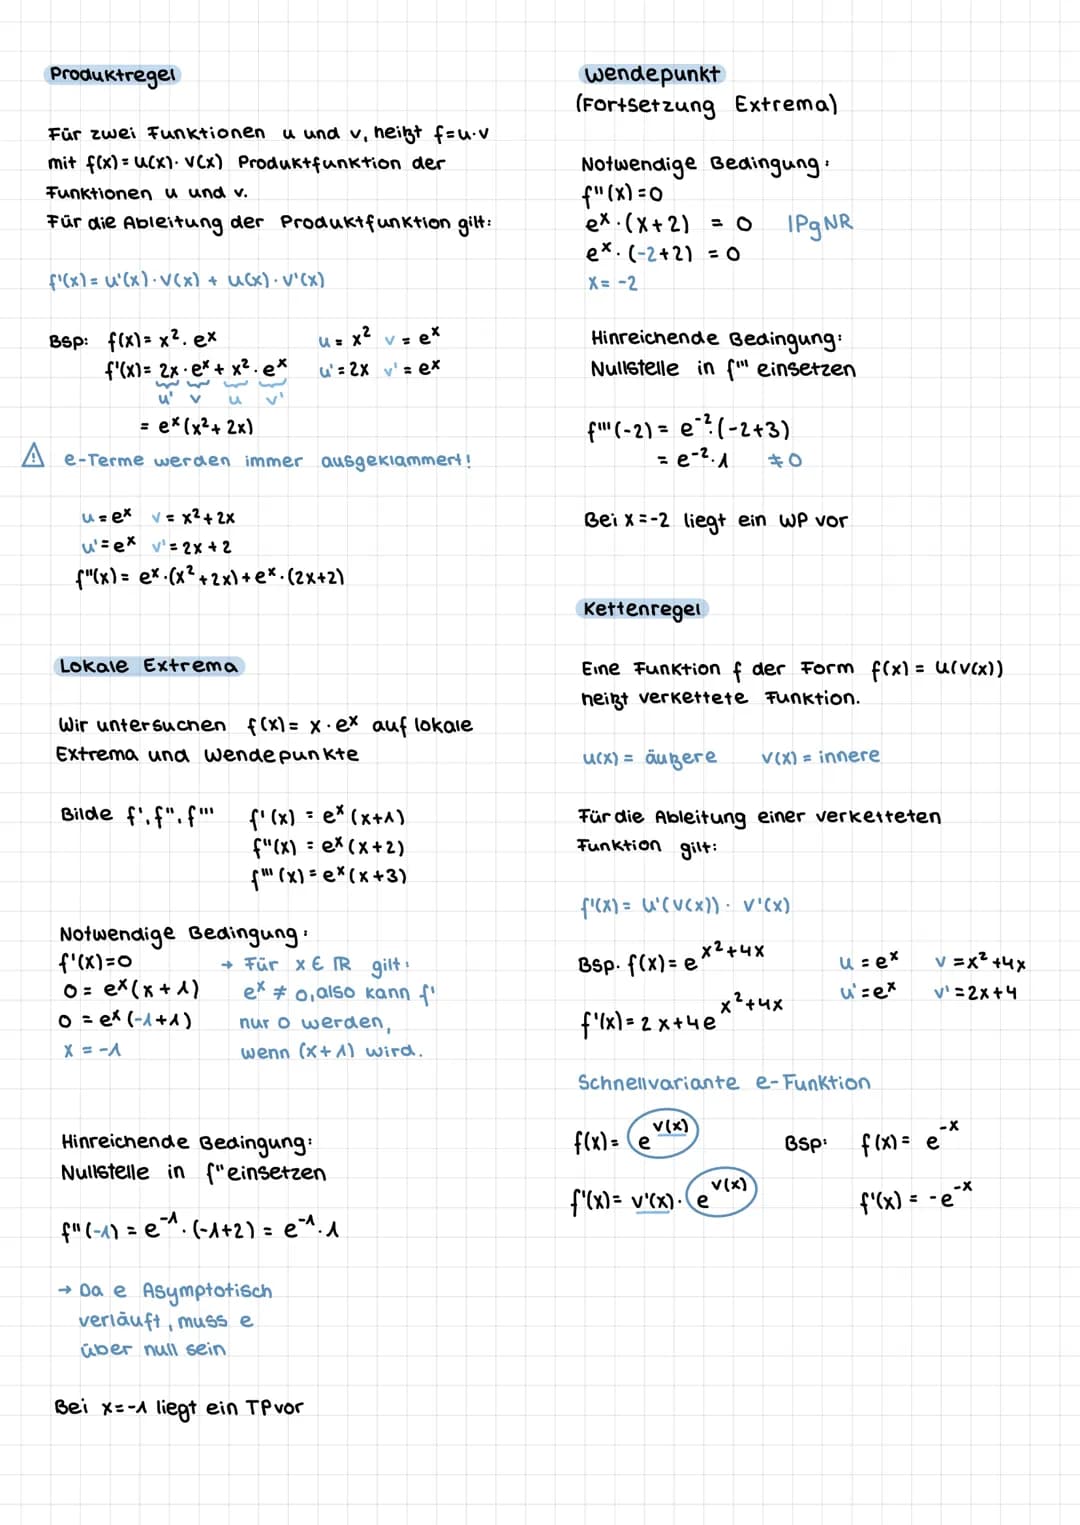 Produktregel
Für zwei Funktionen u und v, heißt f=u·v
mit f(x) = u(x)· v(x) Produktfunktion der
Funktionen u und v.
Für die Ableitung der Produktfunktion gilt:
f'(x) = u'(x)·v(x) + u(x)·v'(x)
Bsp: f(x) = x²·eˣ u = x² v = eˣ
f'(x) = 2x·eˣ + x²·eˣ u' = 2x v' = eˣ
u' v u v'
= eˣ(x²+2x)
⚠ e-Terme werden immer ausgeklammert!
u = eˣ v = x²+2x
u' = eˣ v' = 2x+2
f''(x) = eˣ·(x²+2x)+eˣ·(2x+2)
Lokale Extrema
Wir untersuchen f(x) = x·eˣ auf lokale
Extrema und Wendepunkte
Bilde f', f'', f''' f'(x) = eˣ(x+1)
f''(x) = eˣ(x+2)
f'''(x) = eˣ(x+3)
Notwendige Bedingung:
f'(x)=0 → Für x ∈ ℝ gilt:
0 = eˣ(x+1) eˣ ≠ 0, also kann f'
0 = eˣ(-1+1) nur 0 werden,
x = -1 wenn (x+1) wird.
Hinreichende Bedingung:
Nullstelle in f'' einsetzen
f''(-1) = e⁻¹·(-1+2) = e⁻¹·1
→ Da e Asymptotisch
verläuft, muss e
über null sein
Bei x=-1 liegt ein TP vor
Wendepunkt
(Fortsetzung Extrema)
Notwendige Bedingung:
f''(x)=0
eˣ·(x+2) = 0 IPgNR
eˣ·(-2+2) = 0
x = -2
Hinreichende Bedingung:
Nullstelle in f''' einsetzen
f'''(-2) = e⁻²·(-2+3)
= e⁻²·1 ≠0
Bei x=-2 liegt ein WP vor
Kettenregel
Eine Funktion f der Form f(x) = u(v(x))
heißt verkettete Funktion.
u(x) = äußere v(x) = innere
Für die Ableitung einer verketteten
Funktion gilt:
f'(x) = u'(v(x))· v'(x)
Bsp. f(x) = e^x²+4x u = eˣ v = x²+4x
u' = eˣ v' = 2x+4
f'(x) = 2x+4e^x²+4x
Schnellvariante e-Funktion
f(x) = e^v(x) Bsp: f(x) = e⁻ˣ
f'(x) = v'(x)·e^v(x) f'(x) = -e⁻ˣ